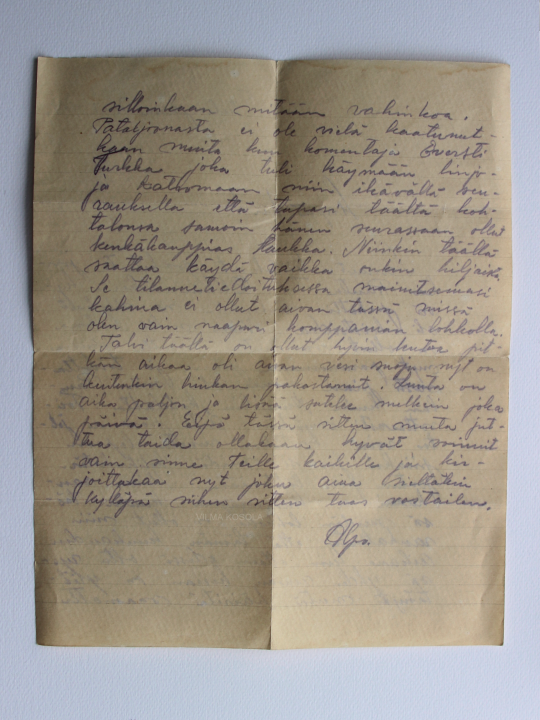 silloinkaan mitään vahinkoa.
Pataljoonasta ei ole vielä kaatunut-
kaan muita kun komentaja Eversti
Turkka joka tuli käymään linjo-
ja katsomaan niin ikävällä seu-
rauksella että tapasi täältä koh-
talonsa samoin hänen seurassaan ollut
kenkäkauppias Haukka. Niinkin täällä
saattaa käydä vaikka onkin hiljaista
Se tilannetiedoituksessa mainitsemasi
kahina ei ollut aivan tässä missä
olen vain naapuri komppanian lohkolla.
Talvi täällä on ollut hyvin leuto pit-
kän aikaa oli aivan vesi suoja nyt on
kuitenkin hiukan pakastanut. Lunta on
aika paljon ja lisää satelee melkein joka
päivä. Eipä tässä sitten muuta jut-
tua taida ollakaan hyvät voinnit
vain sinne Teille kaikille ja kir-
joittakaa nyt joku aina sieltäkin
Kylläpä siihen sitten taas vastailen.
VILMA KOSOLA